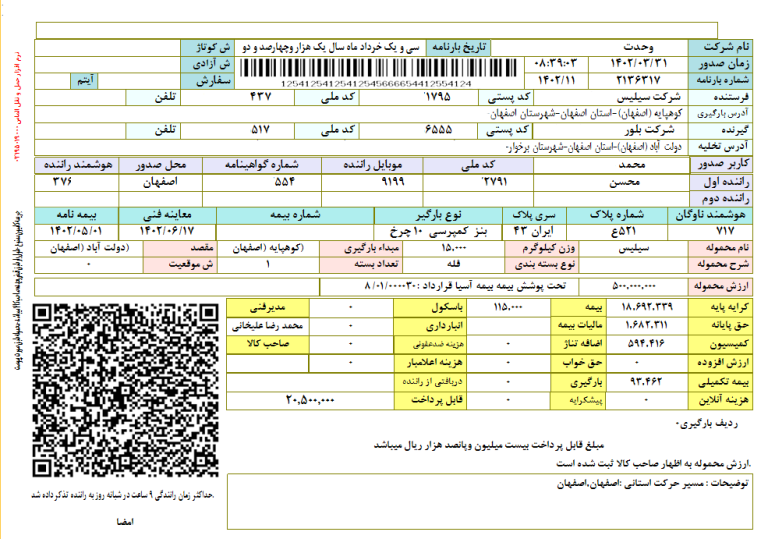 نام شرکت وحدت تاریخ بارنامه سی و یک خرداد ماه سال یک هزار وچهارصد و دو ش کوتاژ
زمان صدور ۱۴۰۲/۰۳/۳۱ ۰۸:۳۹:۰۳ ش آزادی
شماره بارنامه ۲۱۳۶۳۱۷ ۱۴۰۲/۱۱ 12541254125412545666654412554124 سفارش آیتم
فرستنده شرکت سیلیس کد پستی ۱۷۹۵' کد ملی ۴۳۷ تلفن
آدرس بارگیری کوهپایه (اصفهان) -استان اصفهان-شهرستان اصفهان
گیرنده شرکت بلور کد پستی ۶۵۵۵ کد ملی ۵۱۷ تلفن
آدرس تخلیه دولت آباد (اصفهان)-استان اصفهان-شهرستان برخوار-
کاربر صدور محمد کد ملی موبایل راننده شماره گواهینامه محل صدور هوشمند راننده
راننده اول محسن ۲۷۹۱' ۹۱۹۹ ۵۵۴ اصفهان ۳۷۶
راننده دوم
هوشمند ناوگان شماره پلاک سری پلاک نوع بارگیر شماره بیمه معاینه فنی بیمه نامه
۷۱۷ ۵۲۱ع ایران ۴۳ بنز کمپرسی ۱۰چرخ ۱۴۰۲/۰۶/۱۷ ۱۴۰۲/۰۵/۰۱
نام محموله سیلیس وزن کیلوگرم ۱۵.۰۰۰ مبداء بارگیری (کوهپایه (اصفهان مقصد (دولت آباد (اصفهان
شرح محموله نوع بسته بندی فله تعداد بسته ۱ ش موقعیت ۰
ارزش محموله ۵۰۰.۰۰۰.۰۰۰ تحت پوشش بیمه بیمه آسیا قرارداد :۸/۰۱/۰۰۰۰۳۰
کرایه پایه ۱۸.۶۹۲.۳۳۹ بیمه ۱۱۵.۰۰۰ باسکول ۰ مدیرفنی
حق پایانه ۱.۶۸۲.۳۱۱ مالیات بیمه انبارداری ۰ محمد رضا علیخانی
کمیسیون ۵۹۴.۴۱۶ اضافه تناژ ۰ هزینه ضدعفونی ۰ صاحب کالا
ارزش افزوده ۰ حق خواب ۰ هزینه اعلامبار ۰
بیمه تکمیلی ۹۳.۴۶۲ بارگیری ۰ دریافتی از راننده
هزینه آنلاین ۰ پیشکرایه ۰ قابل پرداخت ۲۰,۵۰۰,۰۰۰
ردیف بارگیری۰
مبلغ قابل پرداخت بیست میلیون وپانصد هزار ریال میباشد
.ارزش محموله به اظهار صاحب کالا ثبت شده است
توضیحات : مسیر حرکت استانی :اصفهان,اصفهان
.حداکثر زمان رانندگی ۹ ساعت در شبانه روز به راننده تذکر داده شد
امضا